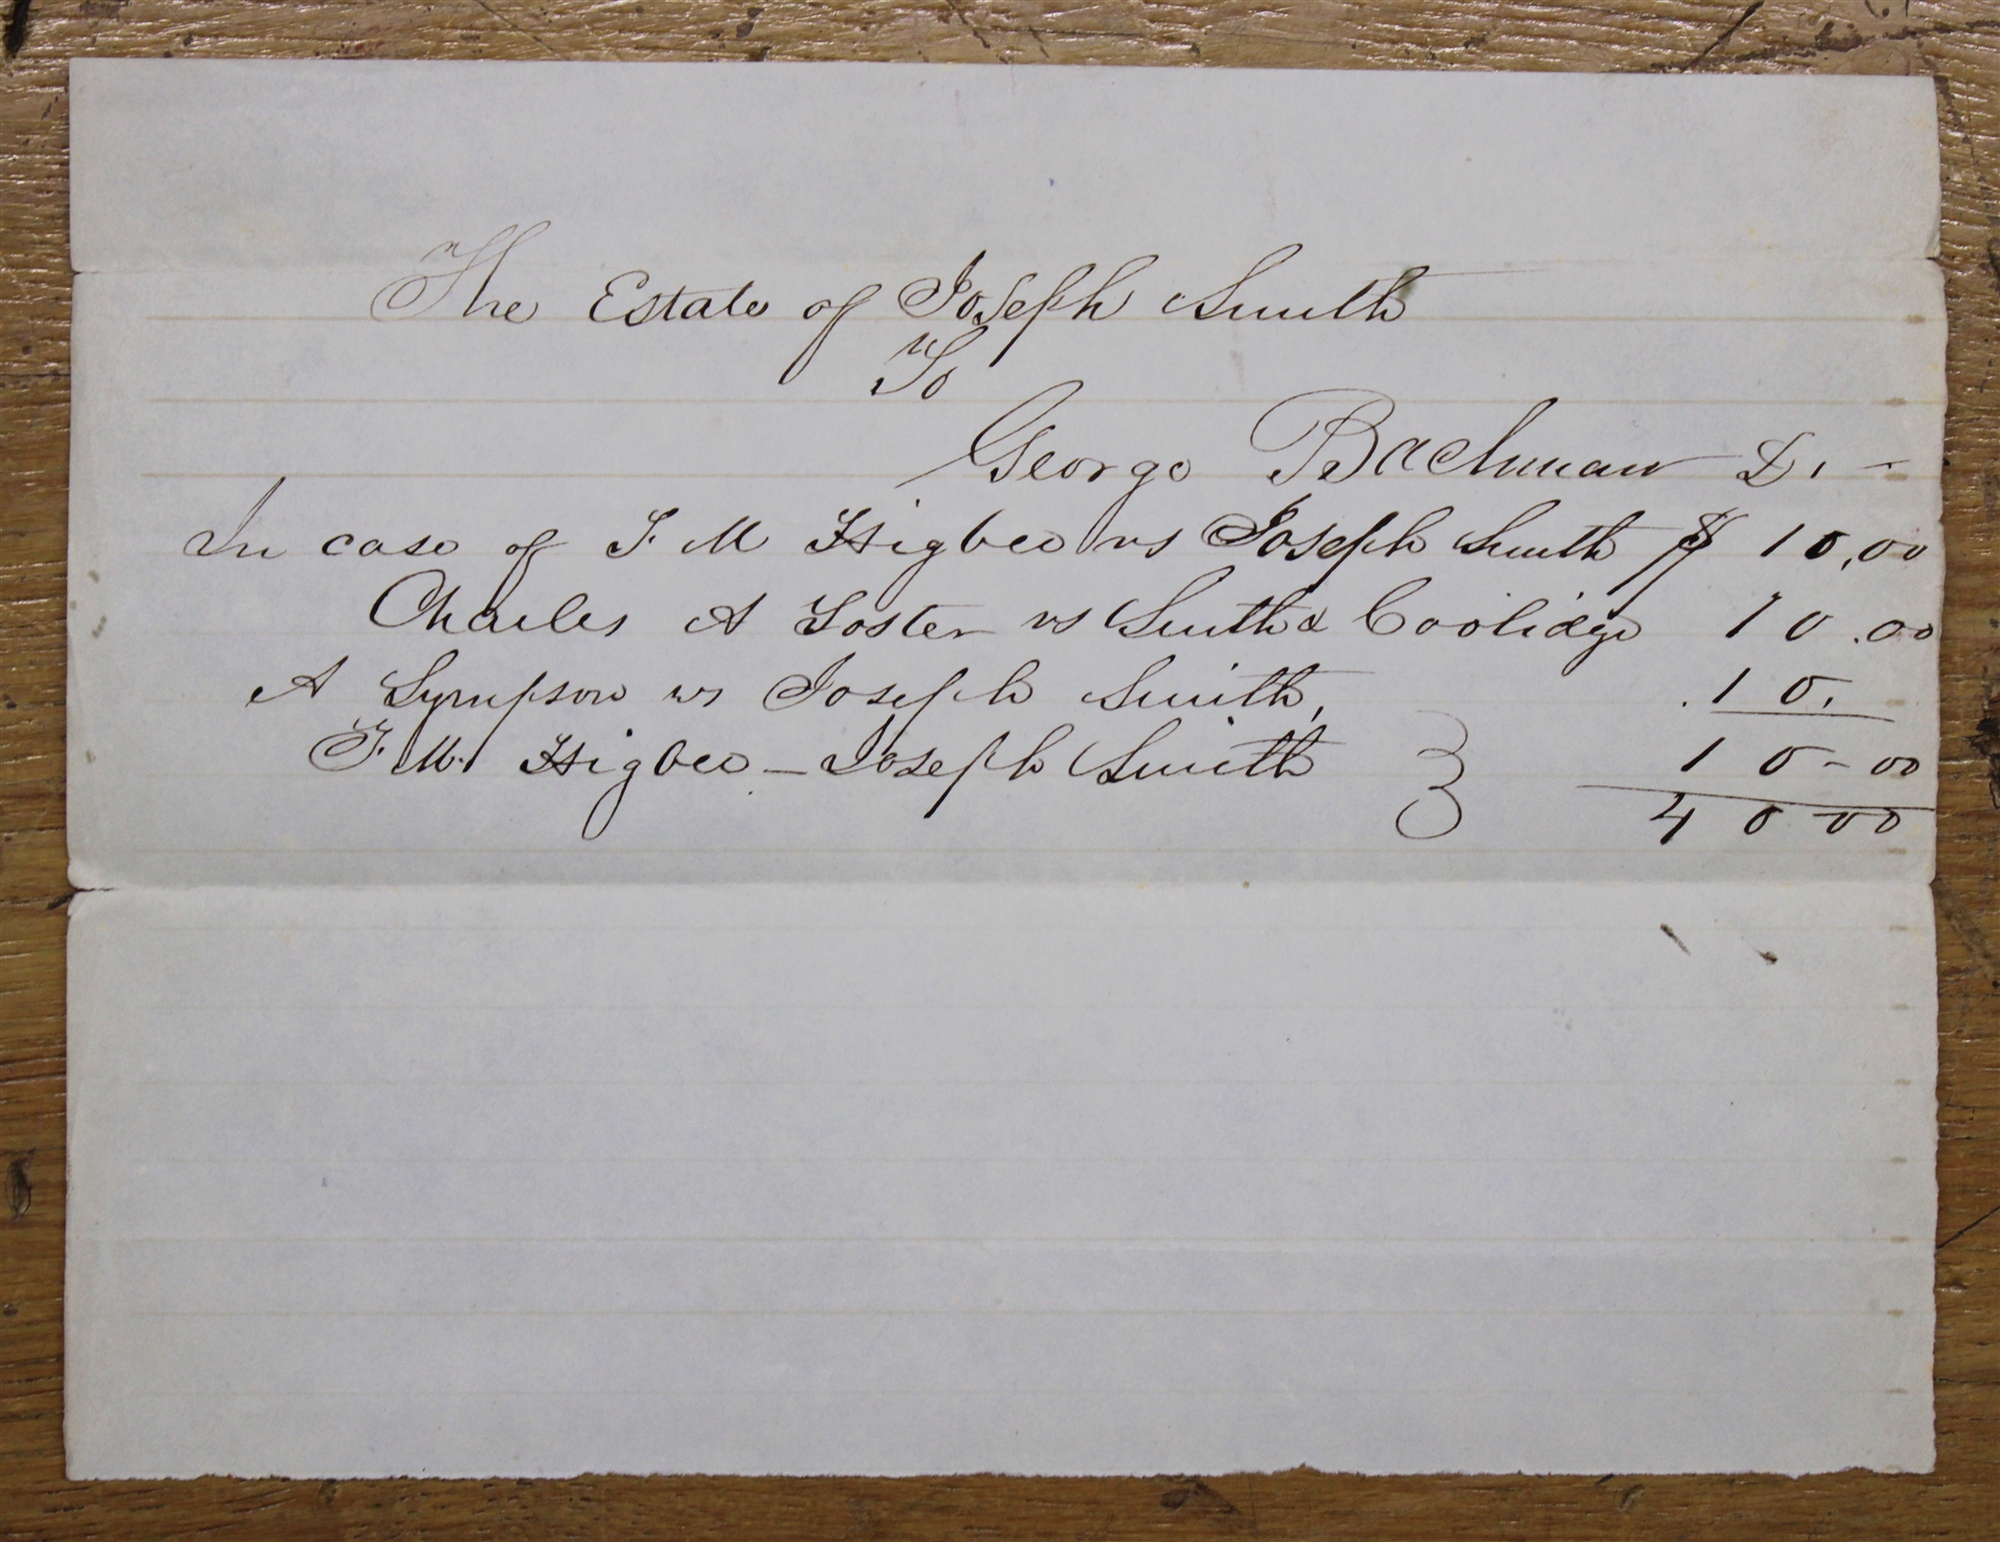 The Estate of Joseph Smith
To
George Bachman D. -
In case of F. M Higbee vs Joseph Smith $ 10.00
Charles A Foster vs Smith & Coolidge 10.00
A Sympson vs Joseph Smith, .10.
F. M. Higbee - Joseph Smith } 10-00
40 00